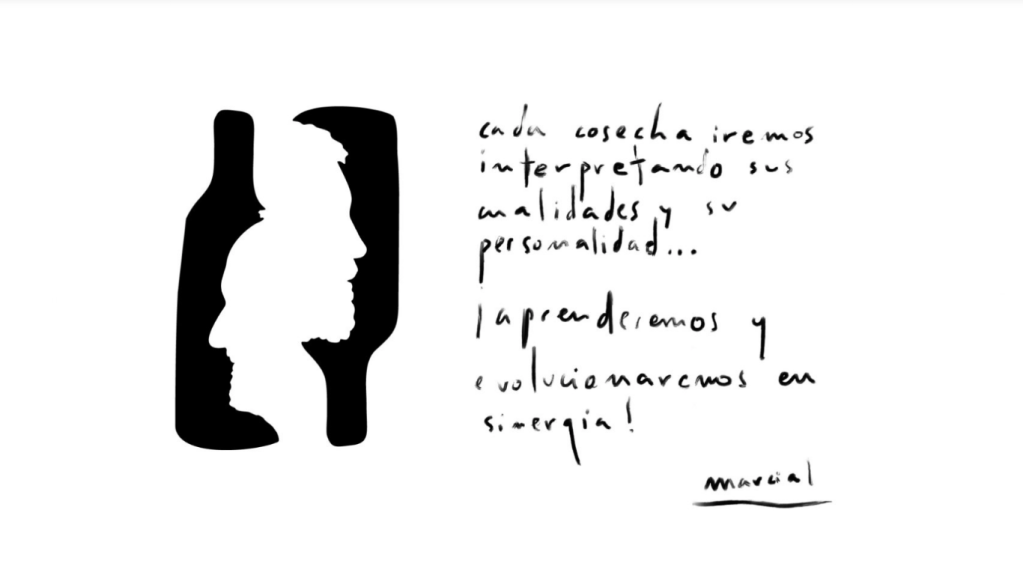 cada cosecha iremos
interpretando sus
cualidades y su
personalidad...
¡aprenderemos y
evolucionaremos en
sinergia!
marcial